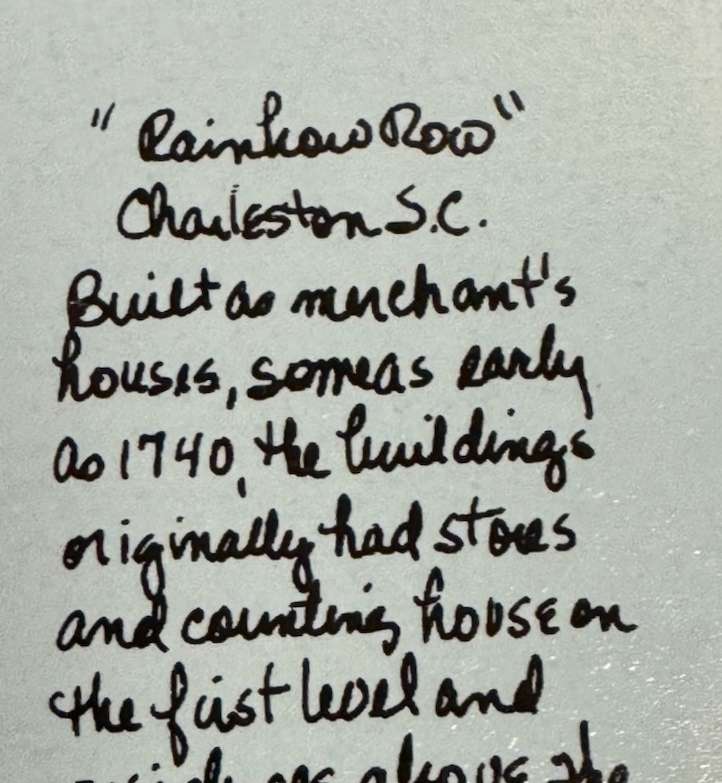 "Rainbow Row"
Charleston S.C.
Built as merchant's
houses, some as early
as 1740, the buildings
originally had stores
and counting house on
the first level and
above the